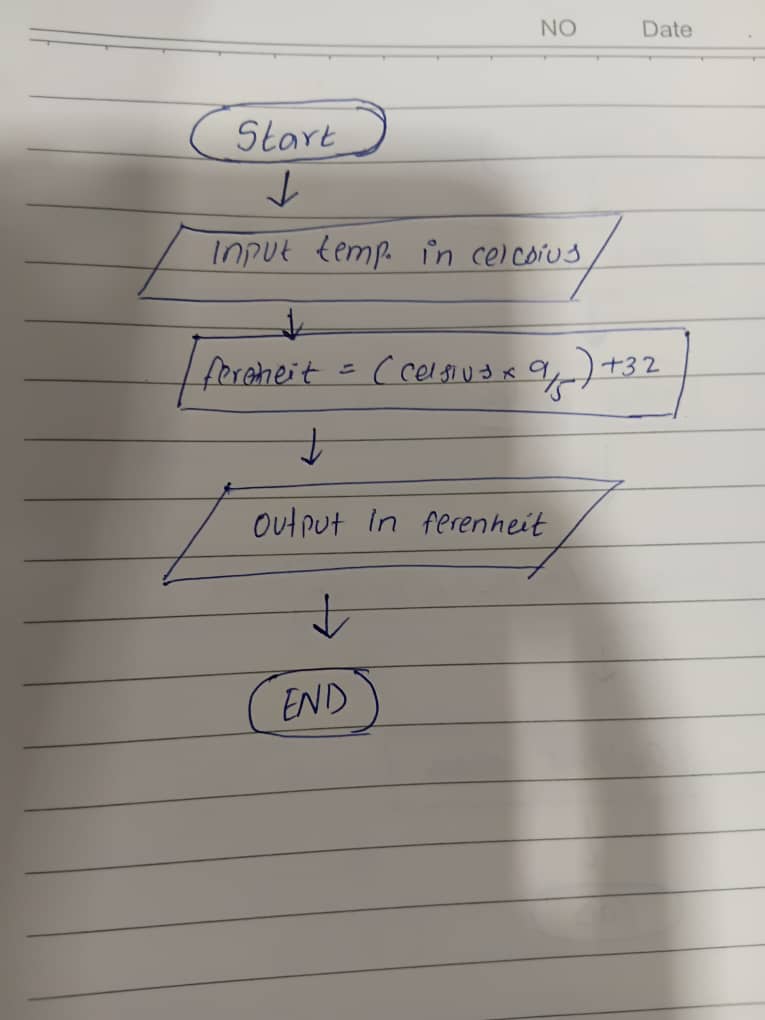 NO Date
Start
Input temp. in celcsius
fereheit = (celsius × 9/5) + 32
Output in ferenheit
END